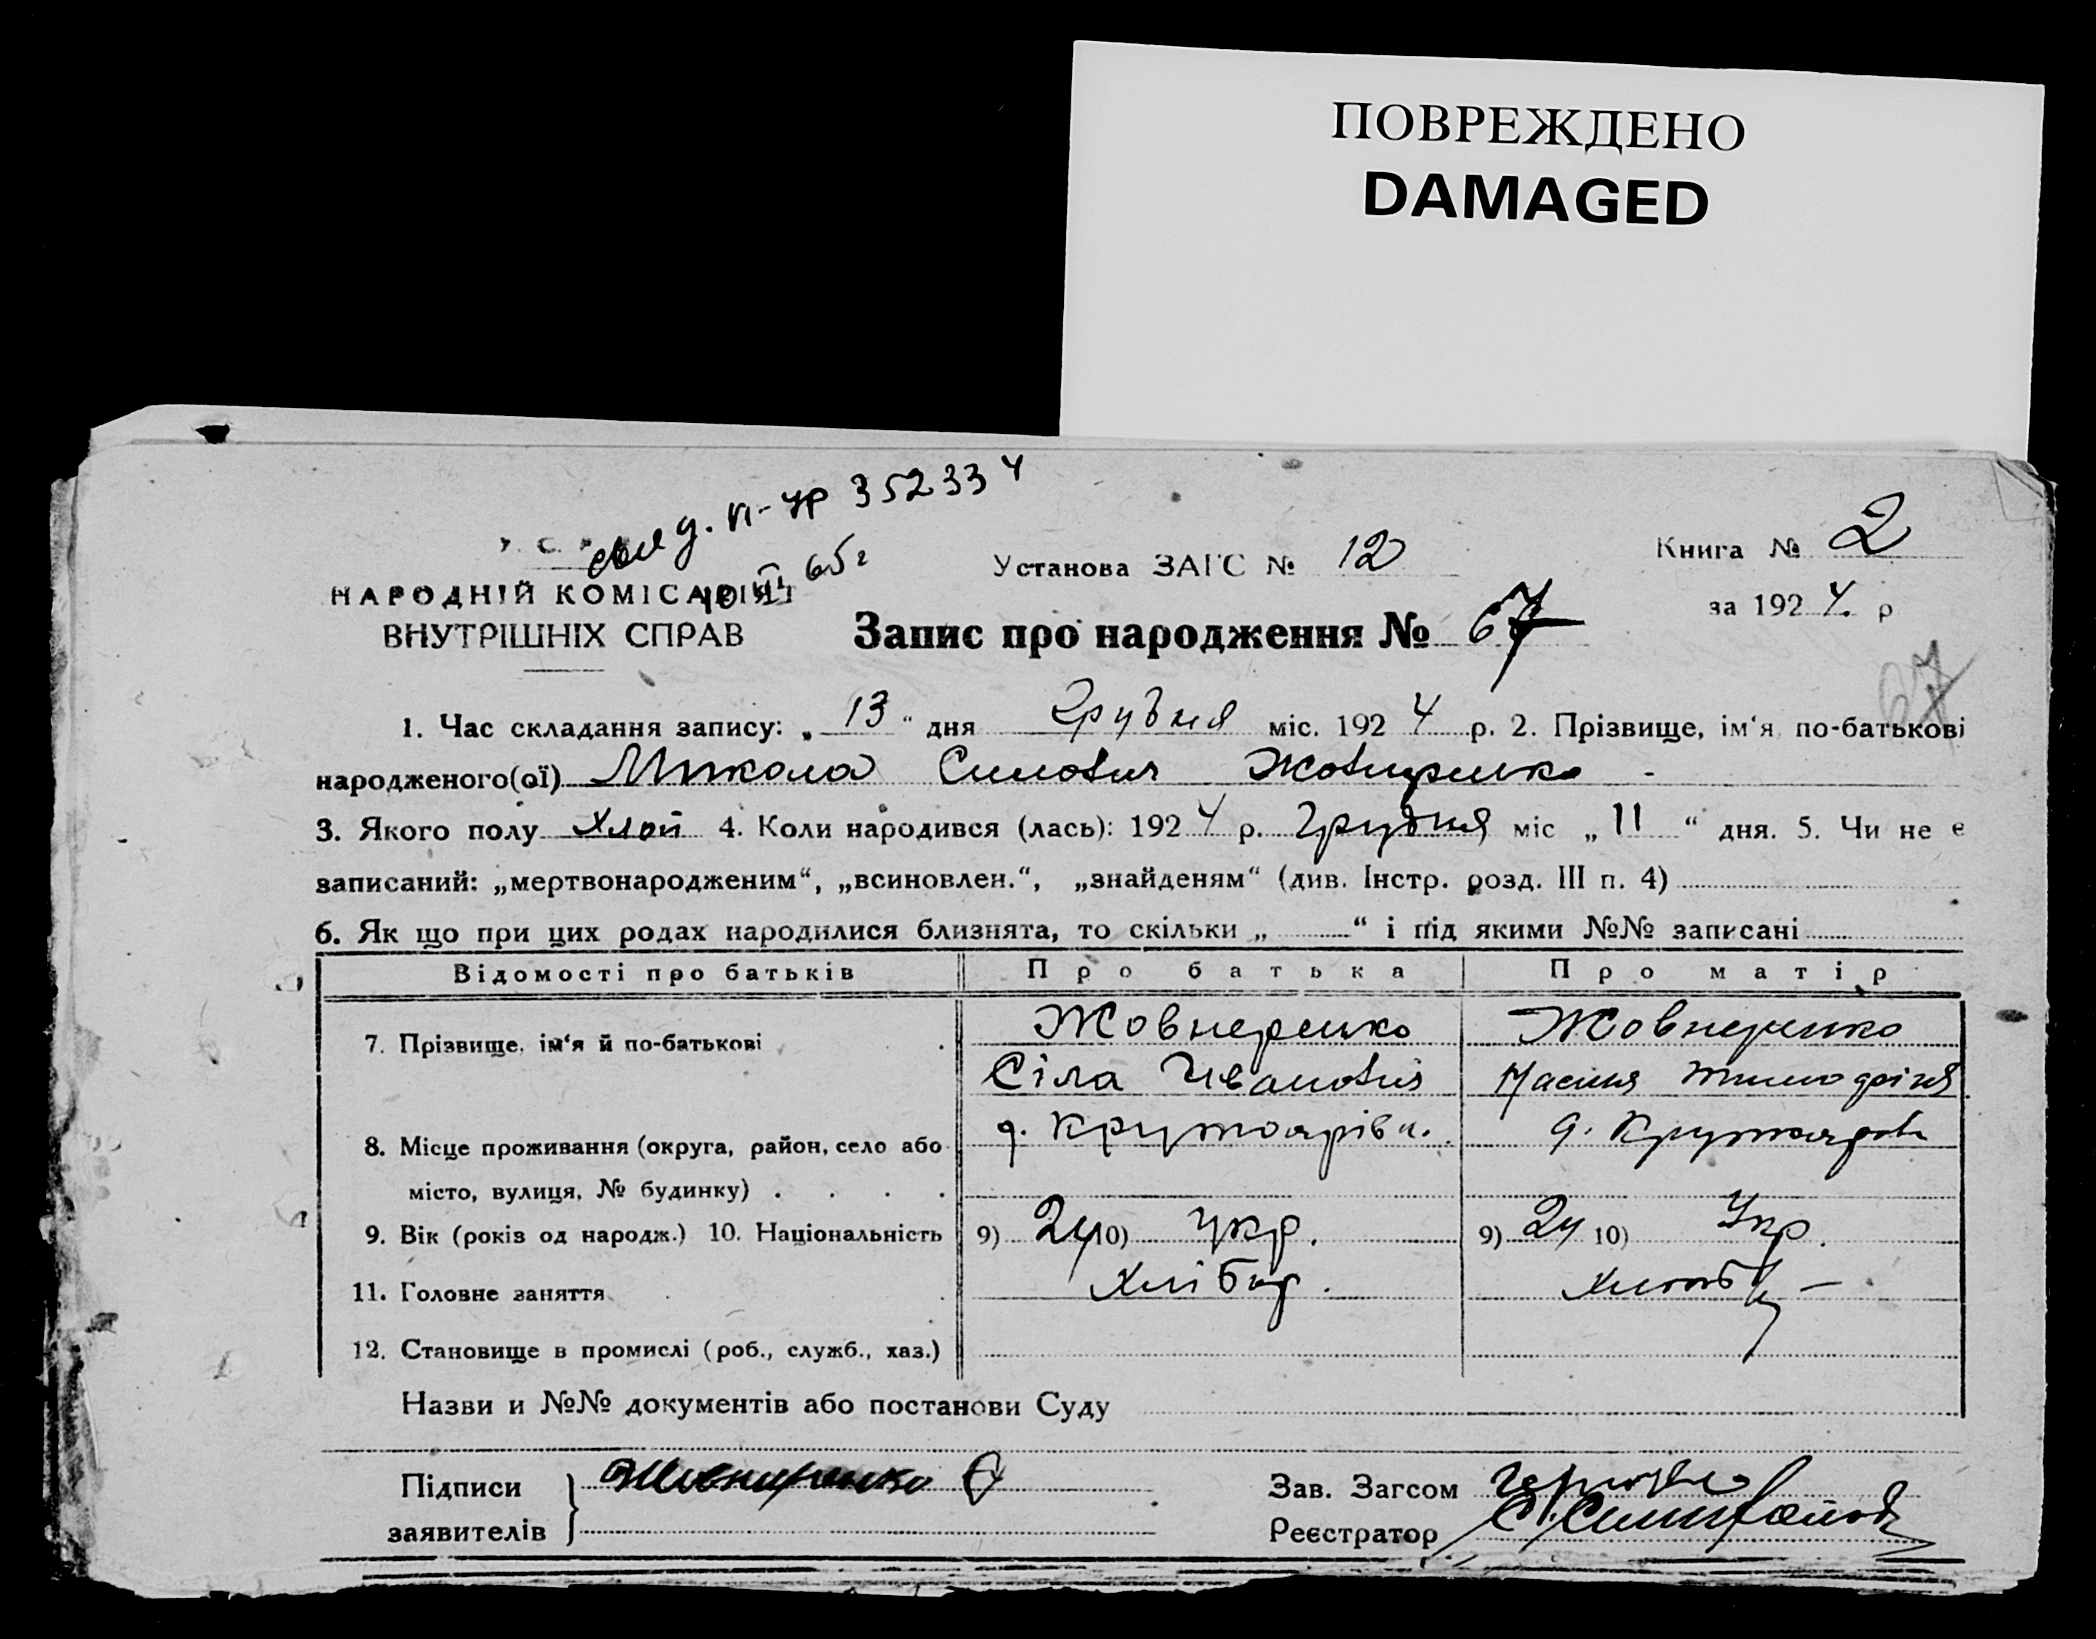 ПОВРЕЖДЕНО
DAMAGED
свид. УР 352334
65 г
У. С.
Установа ЗАГС № 12
Книга № 2
НАРОДНІЙ КОМІСАРІЯТ
ВНУТРІШНІХ СПРАВ
за 1924. р
Запис про народження № 67
67
1. Час складання запису: „13“ дня грудня міс. 1924 р. 2. Прізвище, ім‘я, по-батькові
народженого(ої) Микола Силович Жовниренко -
3. Якого полу Хлоп 4. Коли народився (лась): 1924 р. грудня міс „11“ дня. 5. Чи не є
записаний: „мертвонародженим“, „всиновлен.“, „знайденям“ (див. Інстр. розд. III п. 4)
6. Як що при цих родах народилися близнята, то скільки „ “ і під якими №№ записані
Відомості про батьків Про батька Про матір
7. Прізвище, ім‘я й по-батькові Жовнеренко Жовнеренко
Сіла Иванович
д. Крутоярівк. д.
8. Місце проживання (округа, район, село або
місто, вулиця, № будинку)
9. Вік (років од народж.) 10. Національність 9) 24 10) укр. 9) 24 10) Укр.
11. Головне заняття Хлібор.
12. Становище в промислі (роб., служб., хаз.)
Назви и №№ документів або постанови Суду
Підписи Жовниренко С
заявителів
Зав. Загсом
Реєстратор